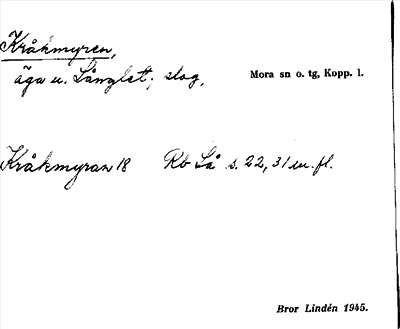 Kråkmyren,
äga u. Långlet; slog,
Mora sn o. tg, Kopp. l.
Kråkmyran 18 Rb Så s. 22, 31 m. fl.
Bror Lindén 1945.